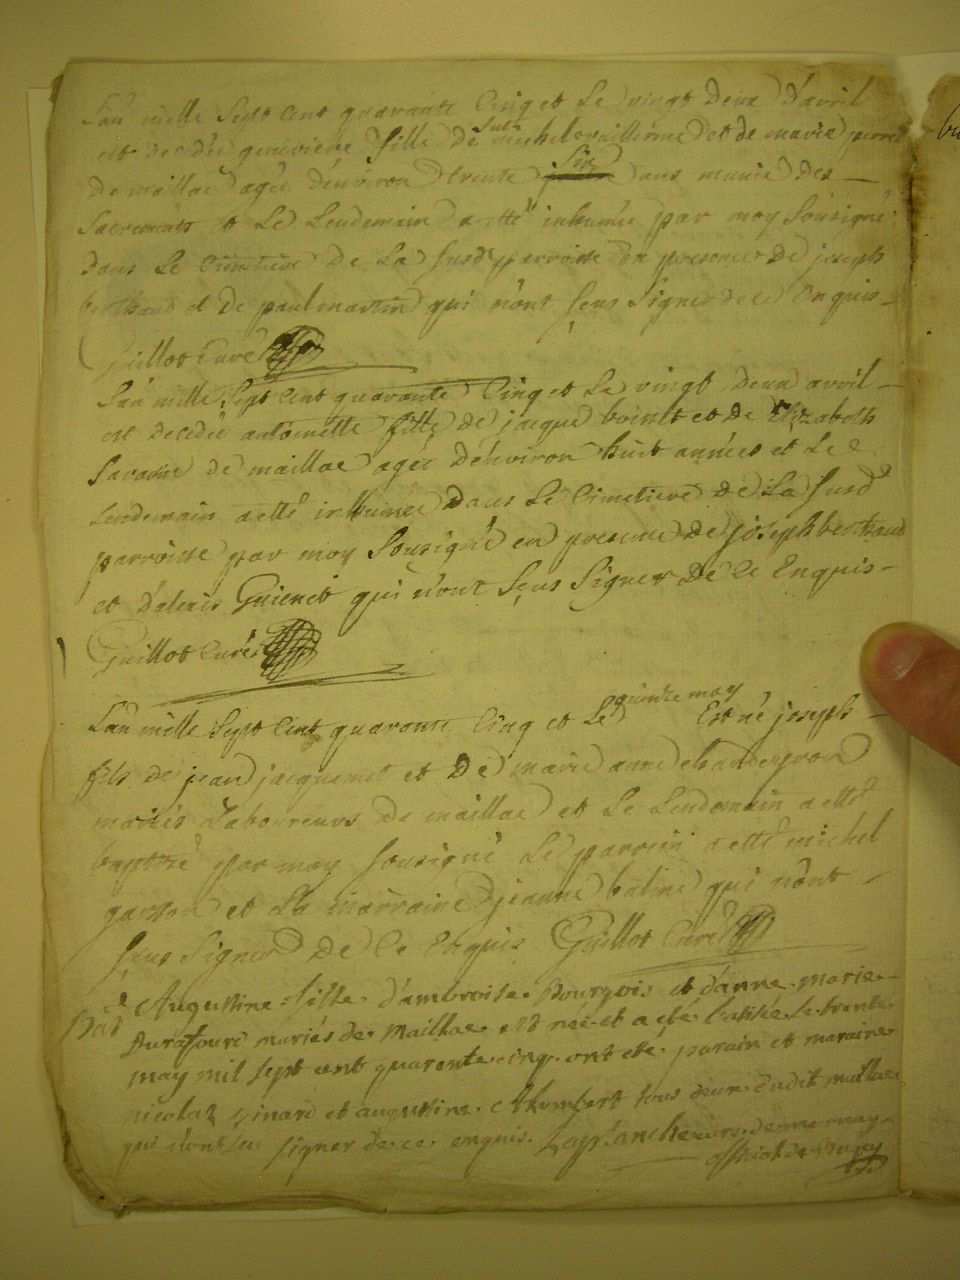 L'an mille Sept Cent quarante Cinq et Le vingt deux d'avril
est decedée genevieve fille de michel vuillerme et de marie
de maillac agée d'environ trente six ans munie des
Sacrements et Le Lendemain a etté inhumée par moy Sousigné
dans Le Cimetiere De La susd parroisse en presence De joseph
et De paul martin qui n'ont sçus Signer de ce Enquis
Guillot Curé
L'an mille Sept Cent quarante Cinq et Le vingt Deux avril
est decedée antoinette fille de jacque et De Elizabeth
de maillac agée D'environ huit années et Le
Lendemain a etté inhumée Dans Le Cimetiere De La susd
parroisse par moy Sousigné en presence De joseph bertrand
et d'alexis qui n'ont sçus Signer De Ce Enquis
Guillot Curé
L'an mille Sept Cent quarante Cinq et Le quinze may Est né joseph
fils de jean jacquemet et De marie anne
mariés Laboureurs de maillac et Le Lendemain a etté
baptisé par moy sousigné Le parrain a etté michel
et La marraine jeanne qui n'ont
sçus Signer De Ce Enquis Guillot Curé
Augustine fille d'ambroise Bourgois et d'anne marie
mariés de Maillac est née et a eté batisée le trente
may mil sept cent quarente cinq ont eté parain et maraine
nicolas et augustine humbert tous deux dudit maillac
qui n'ont sçu signer de ce enquis Laplanche